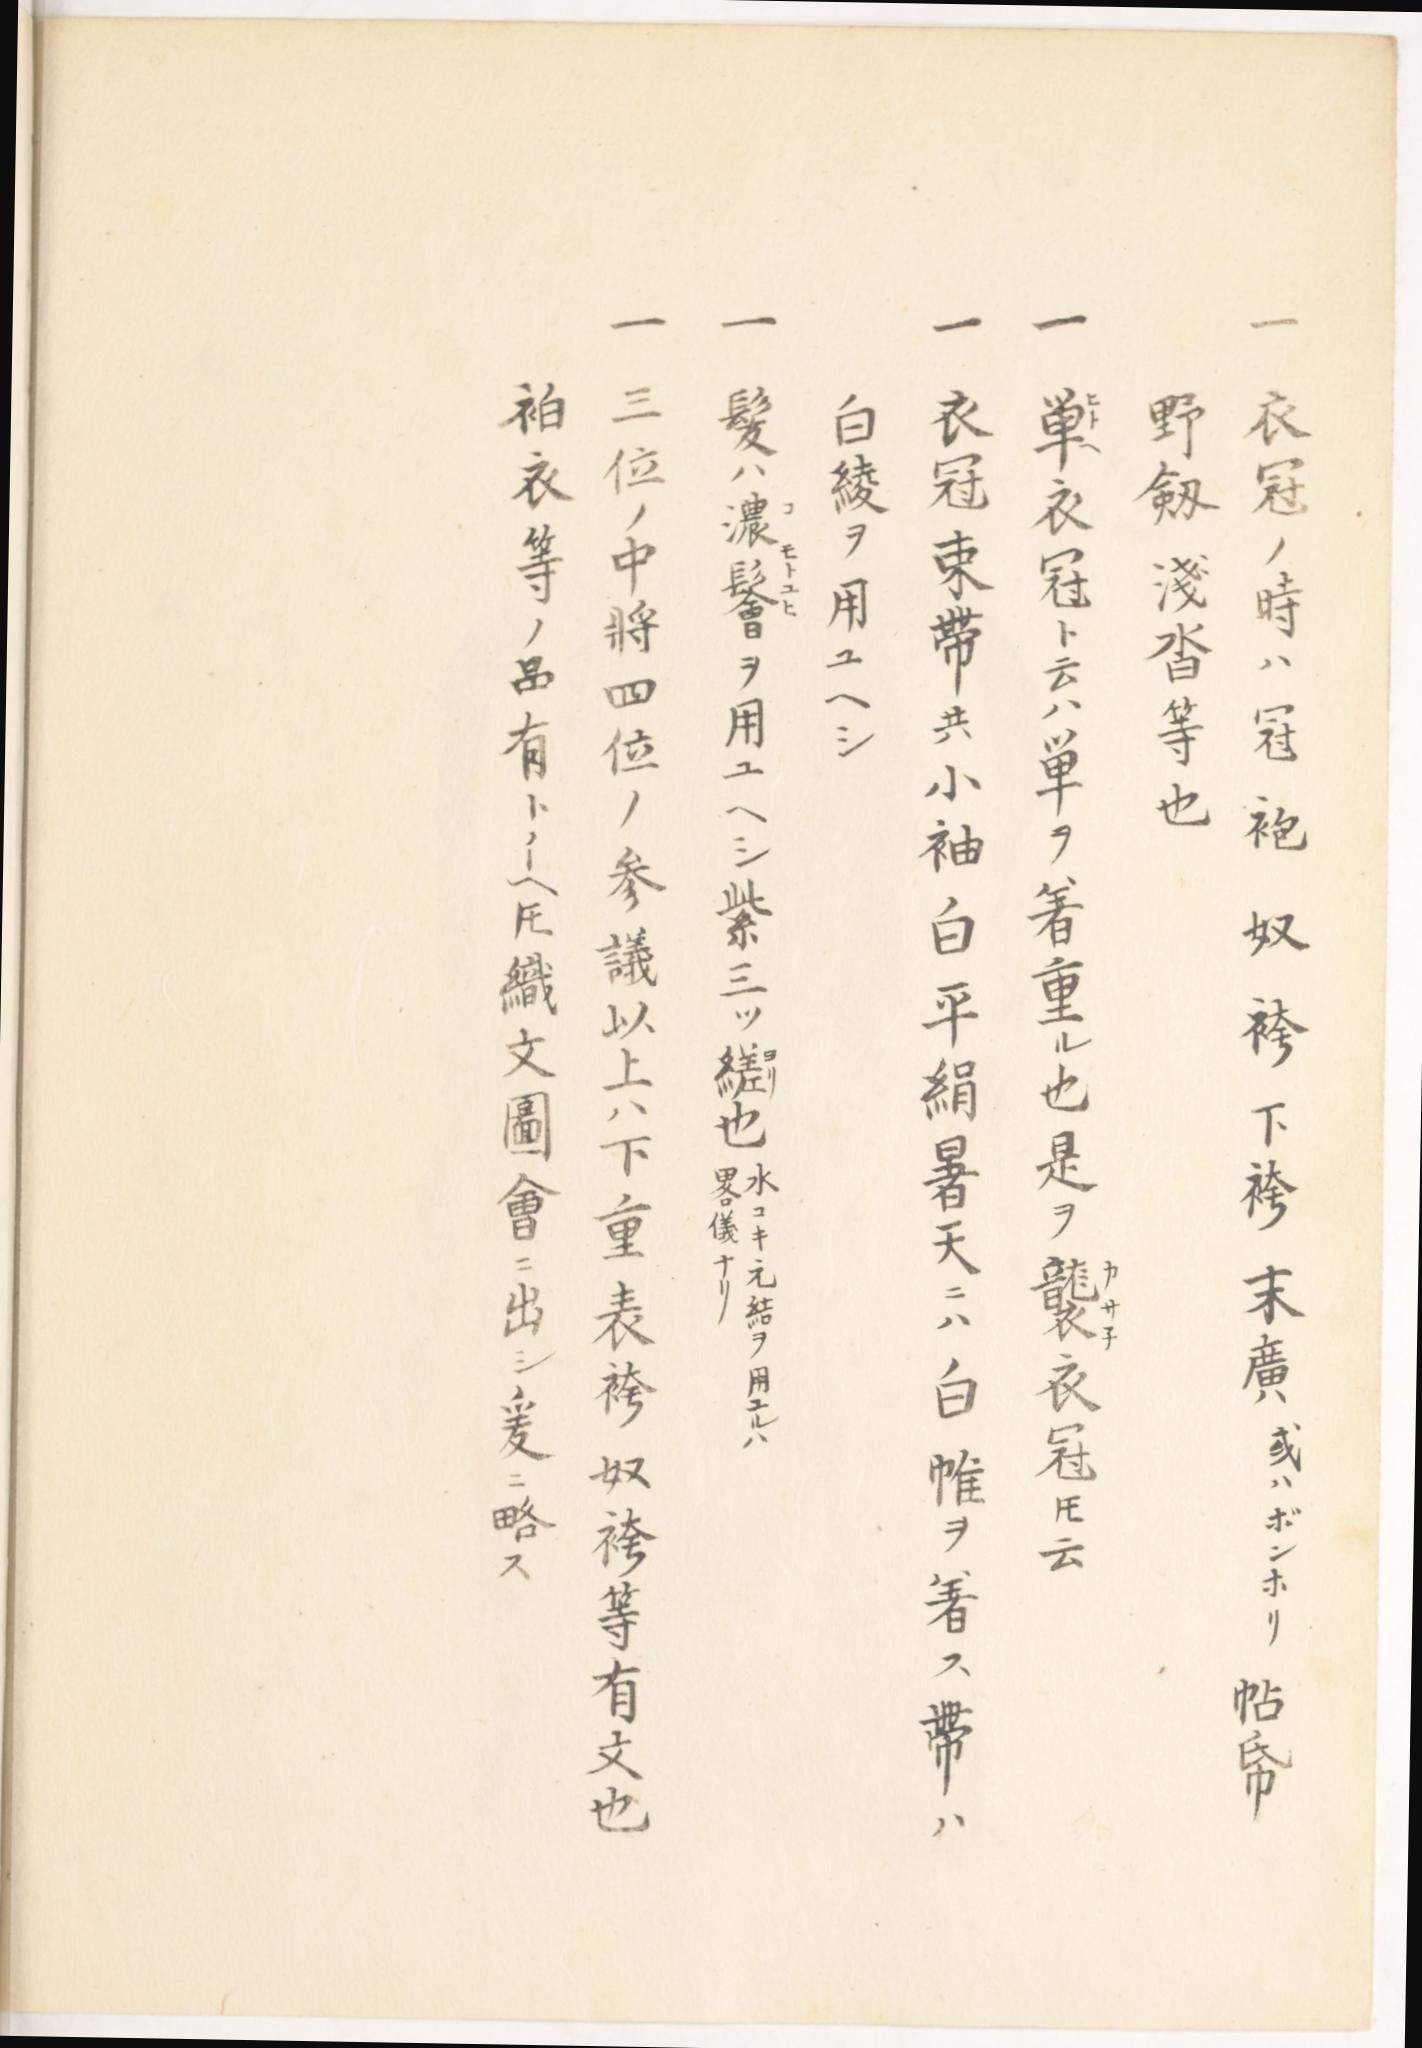 一 衣冠ノ時ハ冠 袍 奴 袴 下袴 末廣 或ハボンホリ 帖帋
野劔 淺沓等也
一 単衣冠ト云ハ単ヲ著重ル也是ヲ襲衣冠𪜈云
ヒトヘ
カサ子
一 衣冠束帶共小袖白平絹暑天ニハ白帷ヲ著ス帶ハ
白綾ヲ用ユヘシ
一 髮ハ濃鬠ヲ用ユヘシ紫三ツ縒也
コモトユヒ
ヨリ
水コキ元結ヲ用ユルハ
畧儀ナリ
一 三位ノ中將四位ノ参議以上ハ下重表袴奴袴等有文也
袙衣等ノ品有トイヘ𪜈織文圖會ニ出シ爰ニ略ス